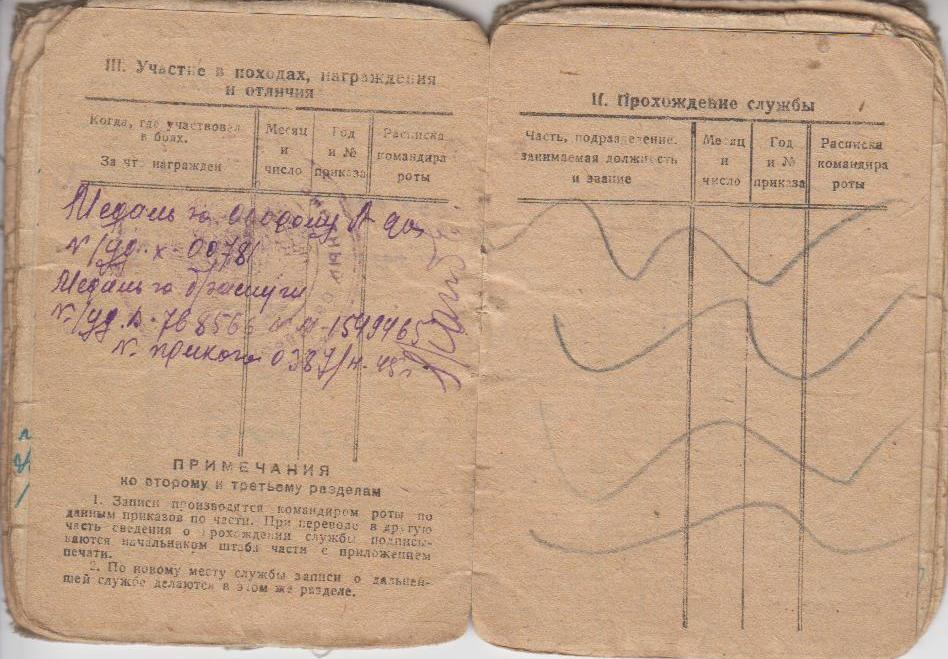 III. Участие в походах, награждения
и отличия
Когда, где участвовал
в боях.
За что награжден
Месяц
и
число
Год
и №
приказа
Расписка
командира
роты
Медаль за
№/уд. х - 0078
Медаль за б/заслуги
№/уд. А - 768563 м - 1549465
N. приказа 0387/н - 45г
ПРИМЕЧАНИЯ
ко второму и третьему разделам
1. Записи производятся командиром роты по
данным приказов по части. При переводе в другую
часть сведения о прохождении службы подписы-
ваются начальником штаба части с приложением
печати.
2. По новому месту службы записи о дальней-
шей службе делаются в этом же разделе.
II. Прохождение службы
Часть, подразделение,
занимаемая должность
и звание
Месяц
и
число
Год
и №
приказа
Расписка
командира
роты